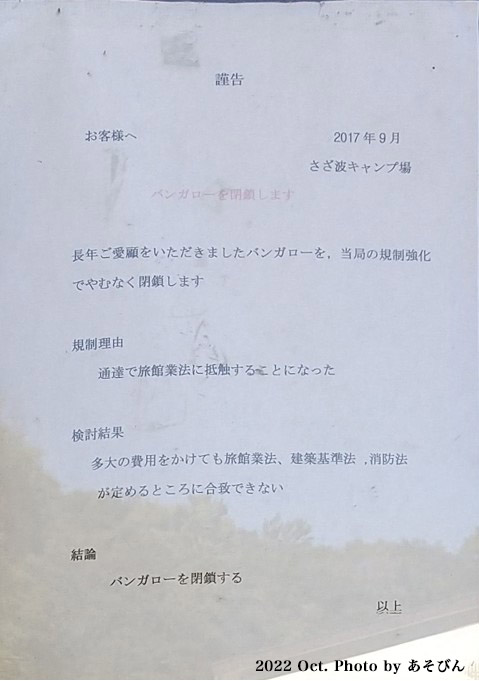 謹告
お客様へ
2017年9月
さざ波キャンプ場
バンガローを閉鎖します
長年ご愛顧をいただきましたバンガローを、当局の規制強化
でやむなく閉鎖します
規制理由
通達で旅館業法に抵触することになった
検討結果
多大の費用をかけても旅館業法、建築基準法 ,消防法
が定めるところに合致できない
結論
バンガローを閉鎖する
以上
2022 Oct. Photo by あそびん